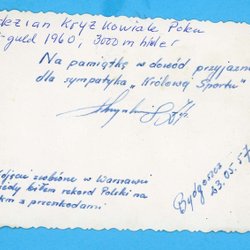 Kryzkowiak Polen
guld 1960, 3000 m hinder
Na pamiątkę w dowód przyjaźni
dla sympatyka „Królowej Sportu"
zdjęcie zrobione w Warszawie
kiedy biłem rekord Polski na
z przeszkodami
Bydgoszcz
23.05.57